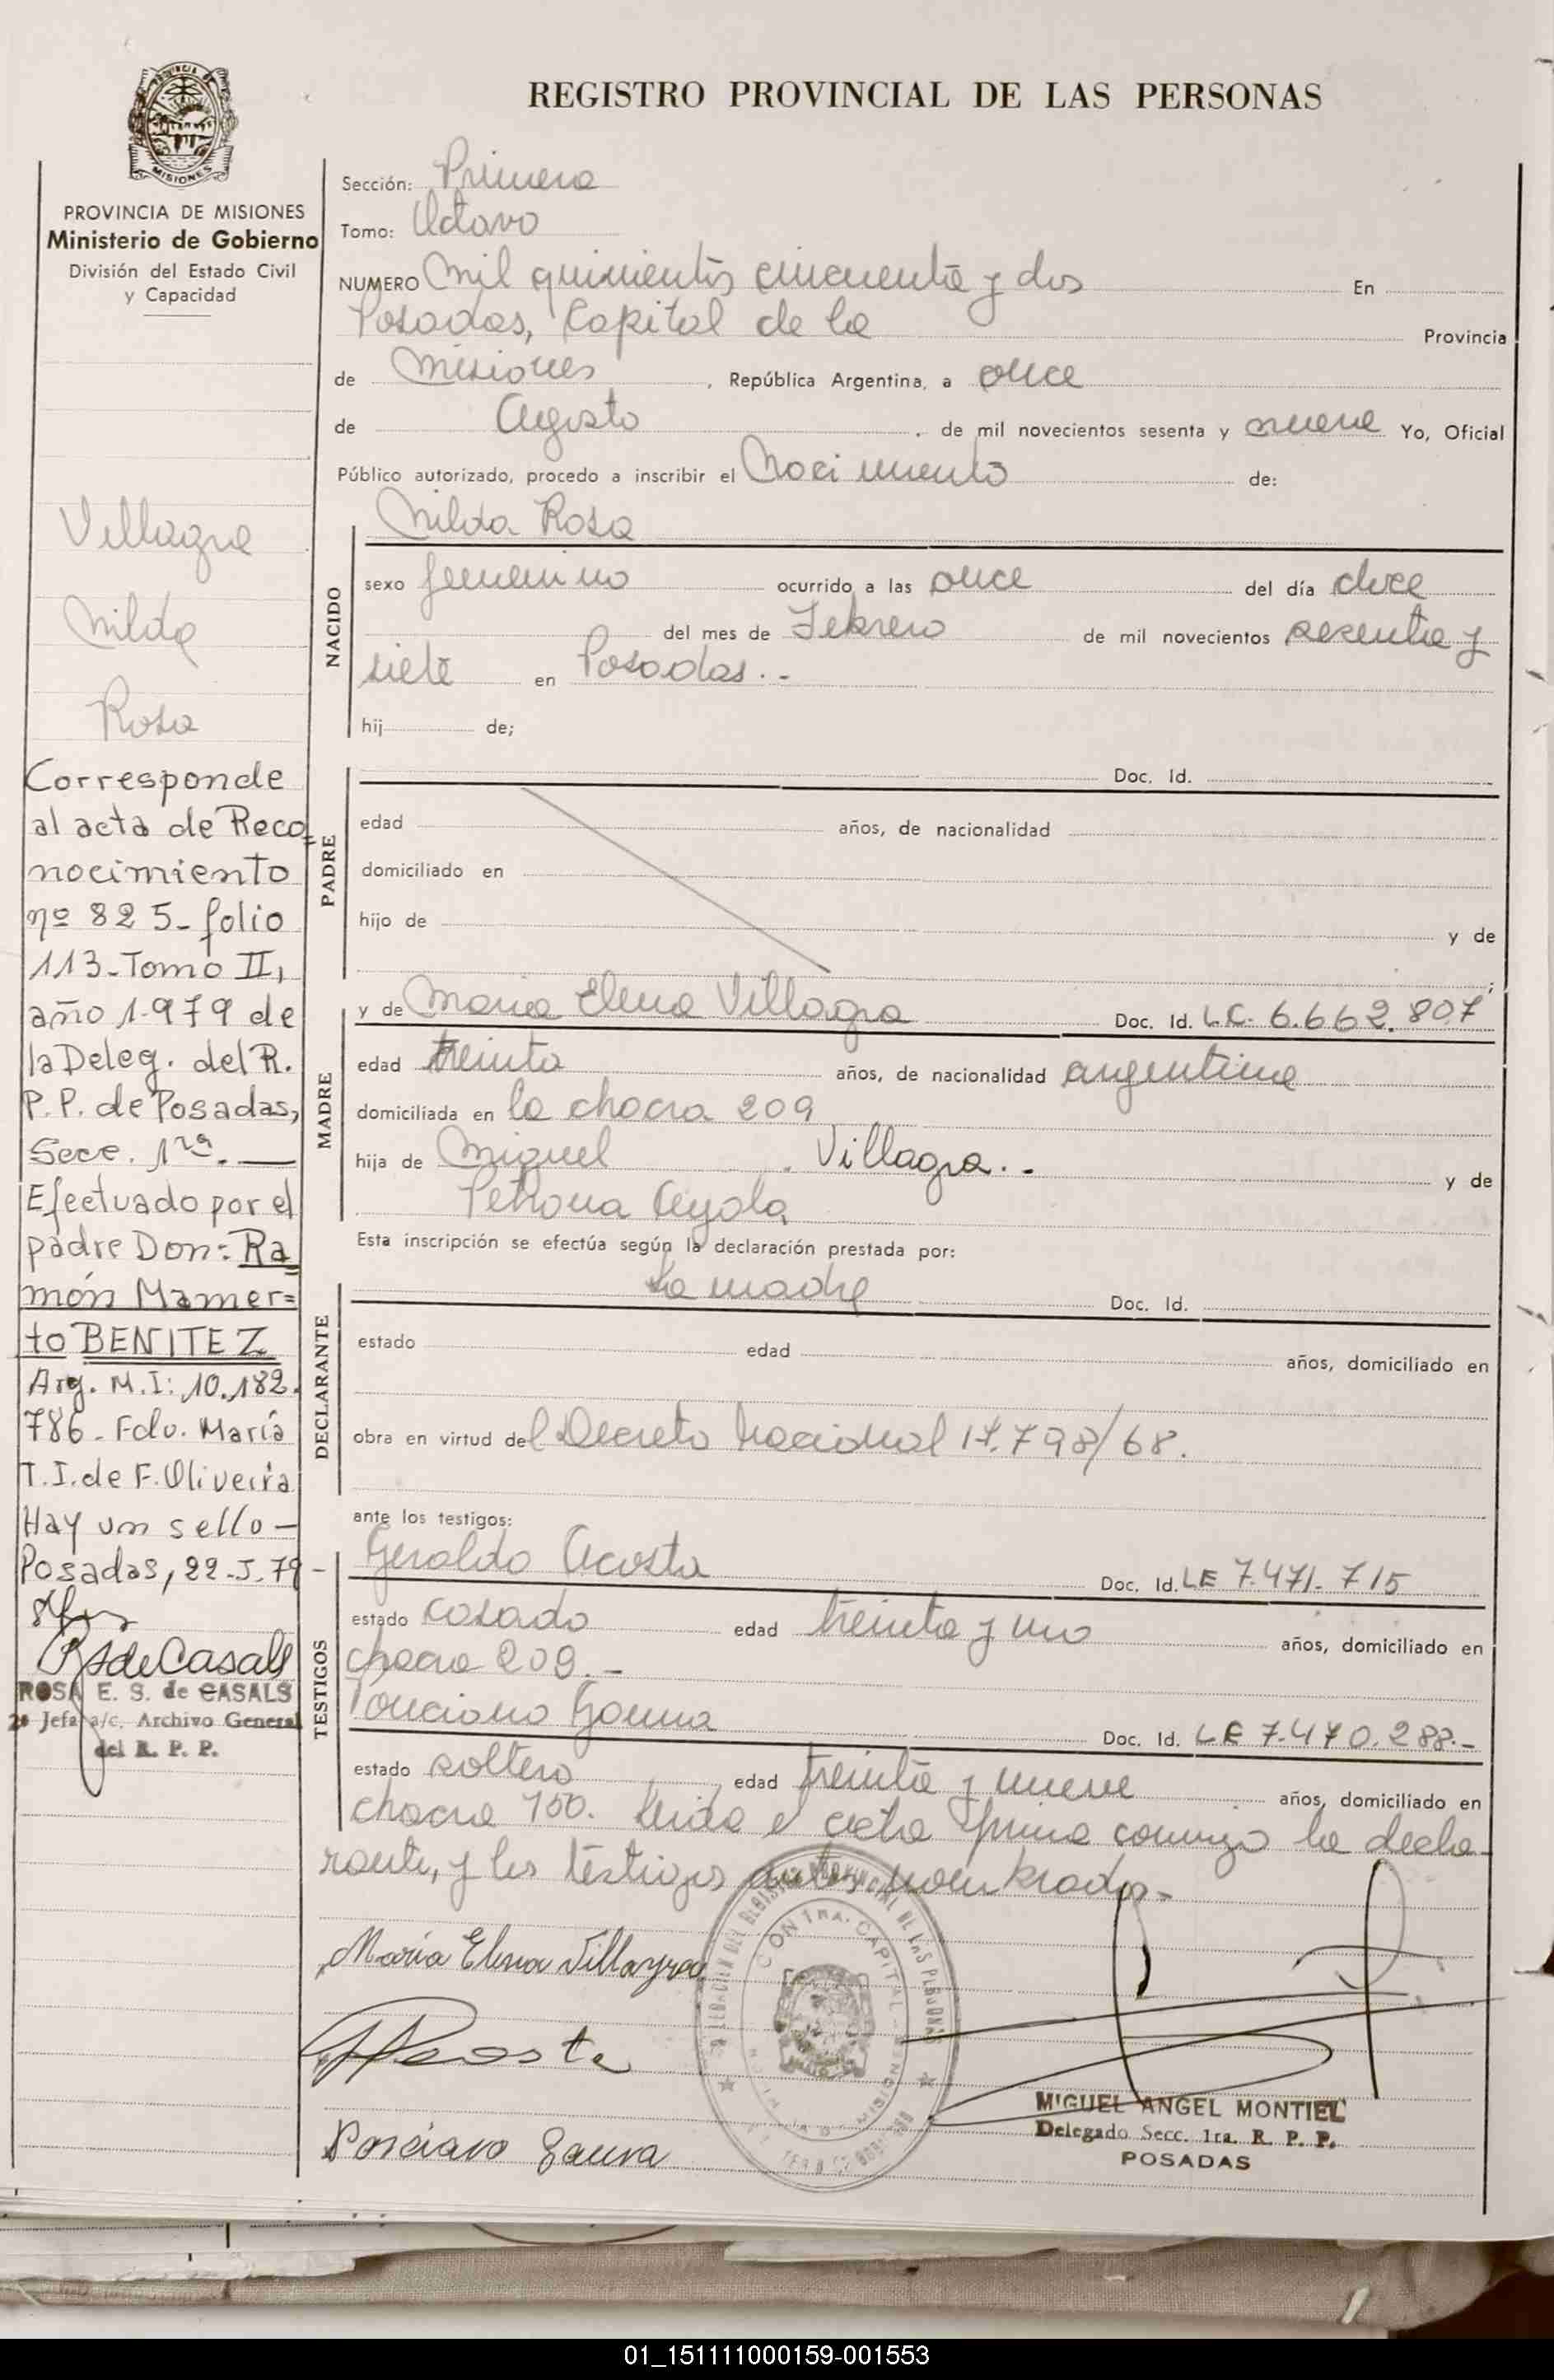 REGISTRO PROVINCIAL DE LAS PERSONAS
PROVINCIA MISIONES
PROVINCIA DE MISIONES
Ministerio de Gobierno
División del Estado Civil
y Capacidad
Villagra
Nilda
Rosa
Corresponde
al acta de Reco=
nocimiento
nº 825-folio
113-Tomo II,
año 1.979 de
la Deleg. del R.
P.P. de Posadas,
Secc. 1ra.
Efectuado por el
padre Don: Ra=
món Mamer=
to BENITEZ
Arg. M.I: 10.182.
786- Fdo. María
T.I. de F. Oliveira
Hay un sello-
Posadas, 22-5-79-
RSdeCasals
ROSA E. S. de CASALS
2ª Jefa a/c. Archivo General
del R. P. P.
Sección: Primera
Tomo: Octavo
NUMERO Mil quinientos cincuenta y dos En
Posadas, Capital de la Provincia
de Misiones, República Argentina, a once
de Agosto, de mil novecientos sesenta y nueve Yo, Oficial
Público autorizado, procedo a inscribir el Nacimiento de:
NACIDO
Nilda Rosa
sexo femenino ocurrido a las once del día doce
del mes de Febrero de mil novecientos sesenta y
siete en Posadas.-
hij de;
PADRE
Doc. Id.
edad años, de nacionalidad
domiciliado en
hijo de y de
MADRE
y de Maria Elena Villagra Doc. Id. L.C. 6.662.807
edad treinta años, de nacionalidad argentina
domiciliada en la chacra 209
hija de Miguel Villagra.- y de
Petrona Ayala
Esta inscripción se efectúa según la declaración prestada por:
DECLARANTE
la madre Doc. Id.
estado edad años, domiciliado en
obra en virtud del Decreto Nacional 17.798/68.
ante los testigos:
TESTIGOS
Geraldo Acosta Doc. Id. LE 7.471.715
estado casado edad treinta y uno años, domiciliado en
chacra 209.-
Ponciano Gauna Doc. Id. LE 7.470.288.-
estado soltero edad treinta y nueve años, domiciliado en
chacra 100. Leida el acta firma conmigo la decla-
rante, y los testigos antes nombrados-
Maria Elena Villagra
GAcosta
Ponciano Gauna
CONTRA-CAPITAL
MIGUEL ANGEL MONTIEL
Delegado Secc. 1ra. R. P. P.
POSADAS
01_151111000159-001553